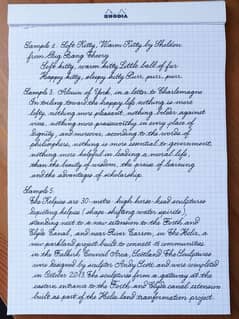 RHODIA
Sample 2. Soft Kitty, Warm Kitty by Sheldon
from Big Bang Theory
Soft kitty, warm kitty Little ball of fur
Happy kitty, sleepy kitty Purr, purr, purr.
Sample 3. Alcuin of York, in a letter to Charlemagne
In toiling toward the happy life, nothing is more
lofty, nothing more pleasant, nothing bolder against
vices, nothing more praiseworthy in every place of
dignity; and moreover, according to the words of
philosophers, nothing is more essential to government,
nothing more helpful in leading a moral life,
than the beauty of wisdom, the praise of learning
and the advantages of scholarship.
Sample 5.
The Kelpies are 30-metre-high horse-head sculptures
depicting kelpies (shape-shifting water spirits),
standing next to a new extension to the Forth and
Clyde Canal, and near River Carron, in The Helix, a
new parkland project built to connect 16 communities
in the Falkirk Council Area, Scotland. The sculptures
were designed by sculptor Andy Scott and were completed
in October 2013. The sculptures form a gateway at the
eastern entrance to the Forth and Clyde canal extension
built as part of the Helix land transformation project.